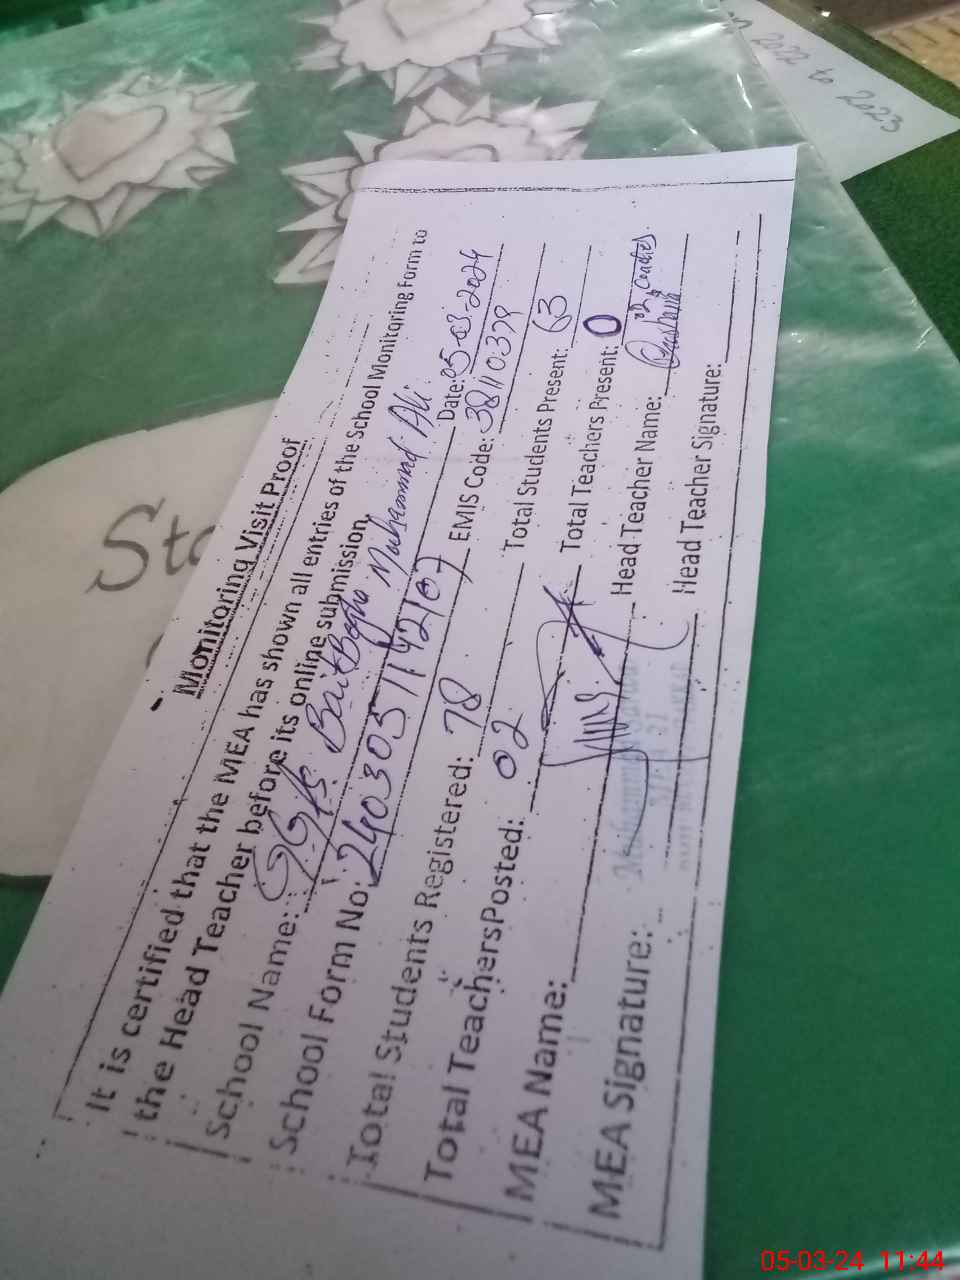 on 2022 to 2023
Sta
Monitoring Visit Proof
It is certified that the MEA has shown all entries of the School Monitoring Form to
the Head Teacher before its online submission
School Name: GGPS Bait Bagho Muhammad Ali Date: 05-03-2024
School Form No: 24030511142107 EMIS Code: 38110339
Total Students Registered: 78 Total Students Present: 63
Total Teachers Posted: 02 Total Teachers Present: 0
MEA Name: Head Teacher Name: 02 Coaches
MEA Signature: Head Teacher Signature:
05-03-24 11:44